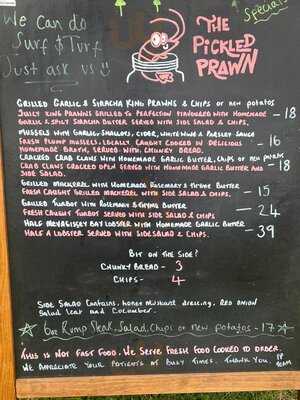 We can do
Surf & Turf
Just ask us
Specials
THE
PICKLED
PRAWN
GRILLED GARLIC & SIRACHA KING PRAWNS & CHIPS OR NEW POTATOS
JUICY KING PRAWNS GRILLED TO PERFECTION FLAVOURED WITH HOMEMADE - 18
GARLIC & SPICY SIRACHA BUTTER SERVED WITH SIDE SALAD & CHIPS.
MUSSELS WITH GARLIC, SHALLOTS, CIDER, WHITE WINE & PARSLEY SAUCE
FRESH PLUMP MUSSELS, LOCALLY CAUGHT COOKED IN DELICIOUS - 16
HOMEMADE BROTH, SERVED WITH CHUNKY BREAD.
CRACKED CRAB CLAWS WITH HOMEMADE GARLIC BUTTER, CHIPS OR NEW POTATOS
CRAB CLAWS CRACKED OPEN SERVED WITH HOMEMADE GARLIC BUTTER AND - 18
SIDE SALAD.
GRILLED MACKEREL WITH HOMEMADE ROSEMARY & THYME BUTTER
FRESH CAUGHT GRILLED MACKEREL WITH SIDE SALAD & CHIPS. - 15
GRILLED TURBOT WITH ROSEMARY & THYME BUTTER
FRESH CAUGHT TURBOT SERVED WITH SIDE SALAD & CHIPS 24
HALF MEVAGISSEY BAY LOBSTER WITH HOMEMADE GARLIC BUTTER
HALF A LOBSTER SERVED WITH SIDE SALAD & CHIPS. - 39
BIT ON THE SIDE?
CHUNKY BREAD - 3
CHIPS - 4
SIDE SALAD CONTAINS, HONEY MUSTARD DRESSING, RED ONION
SALAD LEAF AND CUCUMBER.
6oz Rump Steak, Salad, Chips or new potatos - 17
THIS IS NOT FAST FOOD. WE SERVE FRESH FOOD COOKED TO ORDER.
WE APPRECIATE YOUR PATIENTS AT BUSY TIMES. THANK YOU. TP
TEAM